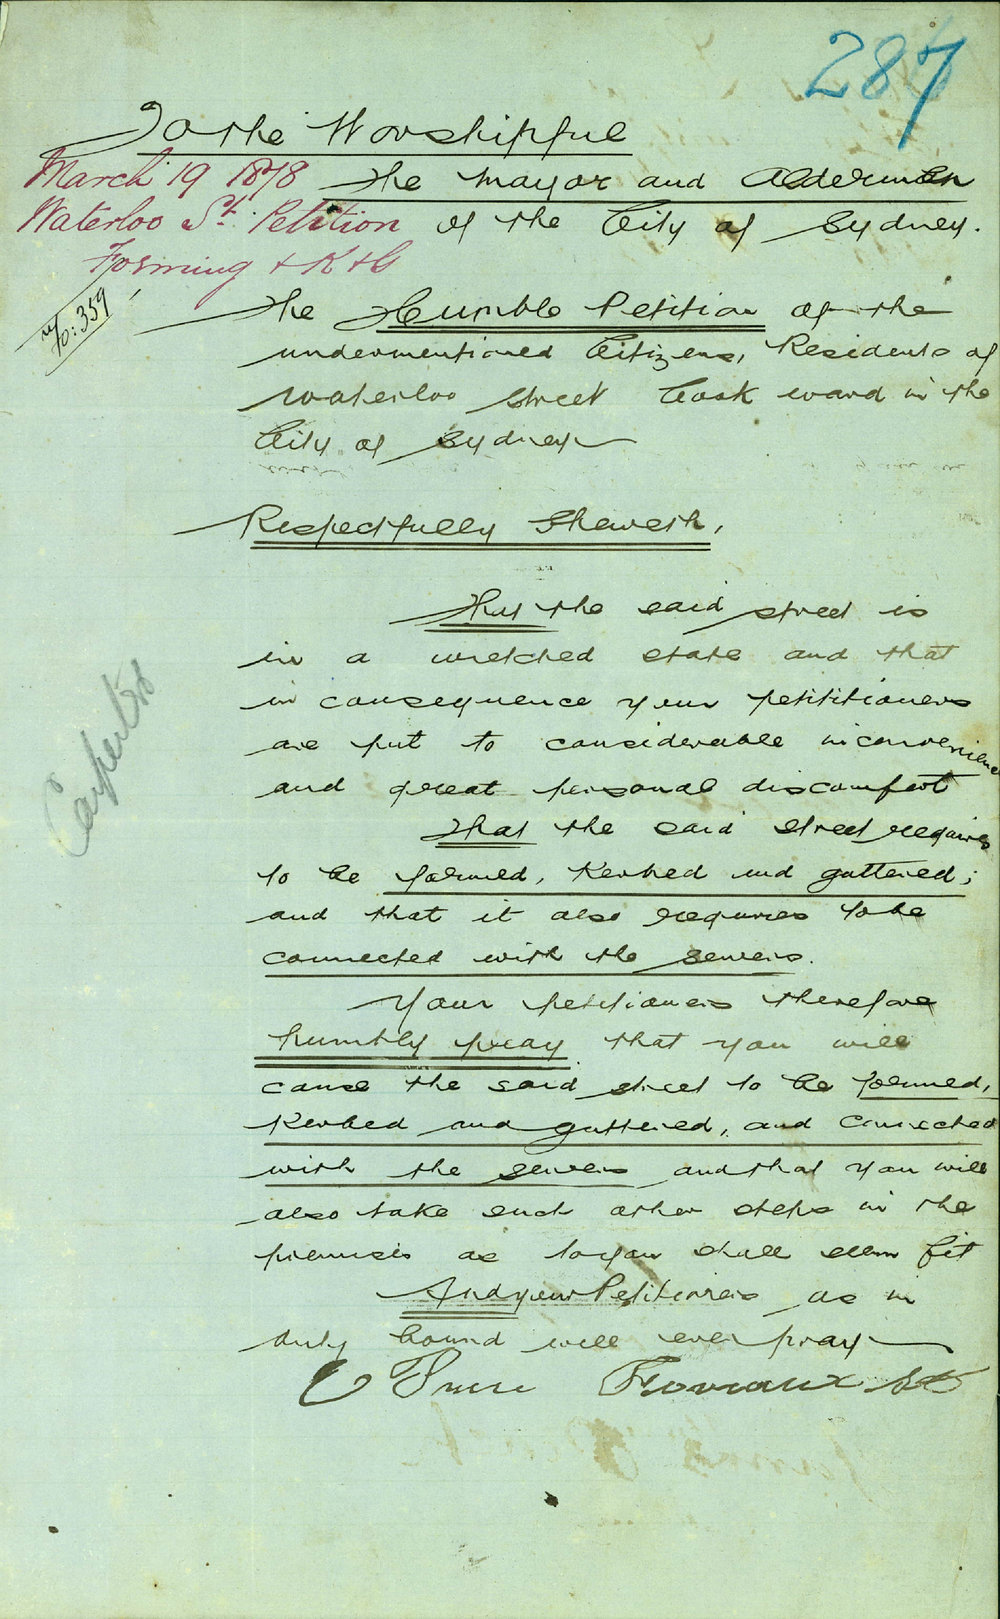 287
To the Worshipful
March 19 1878
The Mayor and Aldermen
Waterloo St. Petition
of the City of Sydney.
Forming & K & G
No: 359
The Humble Petition of the
undermentioned Citizens, Residents of
Waterloo Street Cook ward in the
City of Sydney
Respectfully Sheweth,
That the said street is
in a wretched state and that
in consequence your petititioners
are put to considerable inconvenience
and great personal discomfort
That the said street requires
to be formed, Kerbed and guttered;
and that it also requires to be
connected with the sewers.
Your petitioners therefore
humbly pray that you will
cause the said street to be formed,
Kerbed and guttered, and connected
with the sewers and that you will
also take such other steps in the
premises as to you shall seem fit
And your Petitioners as in
duty bound will ever pray
Foveaux St